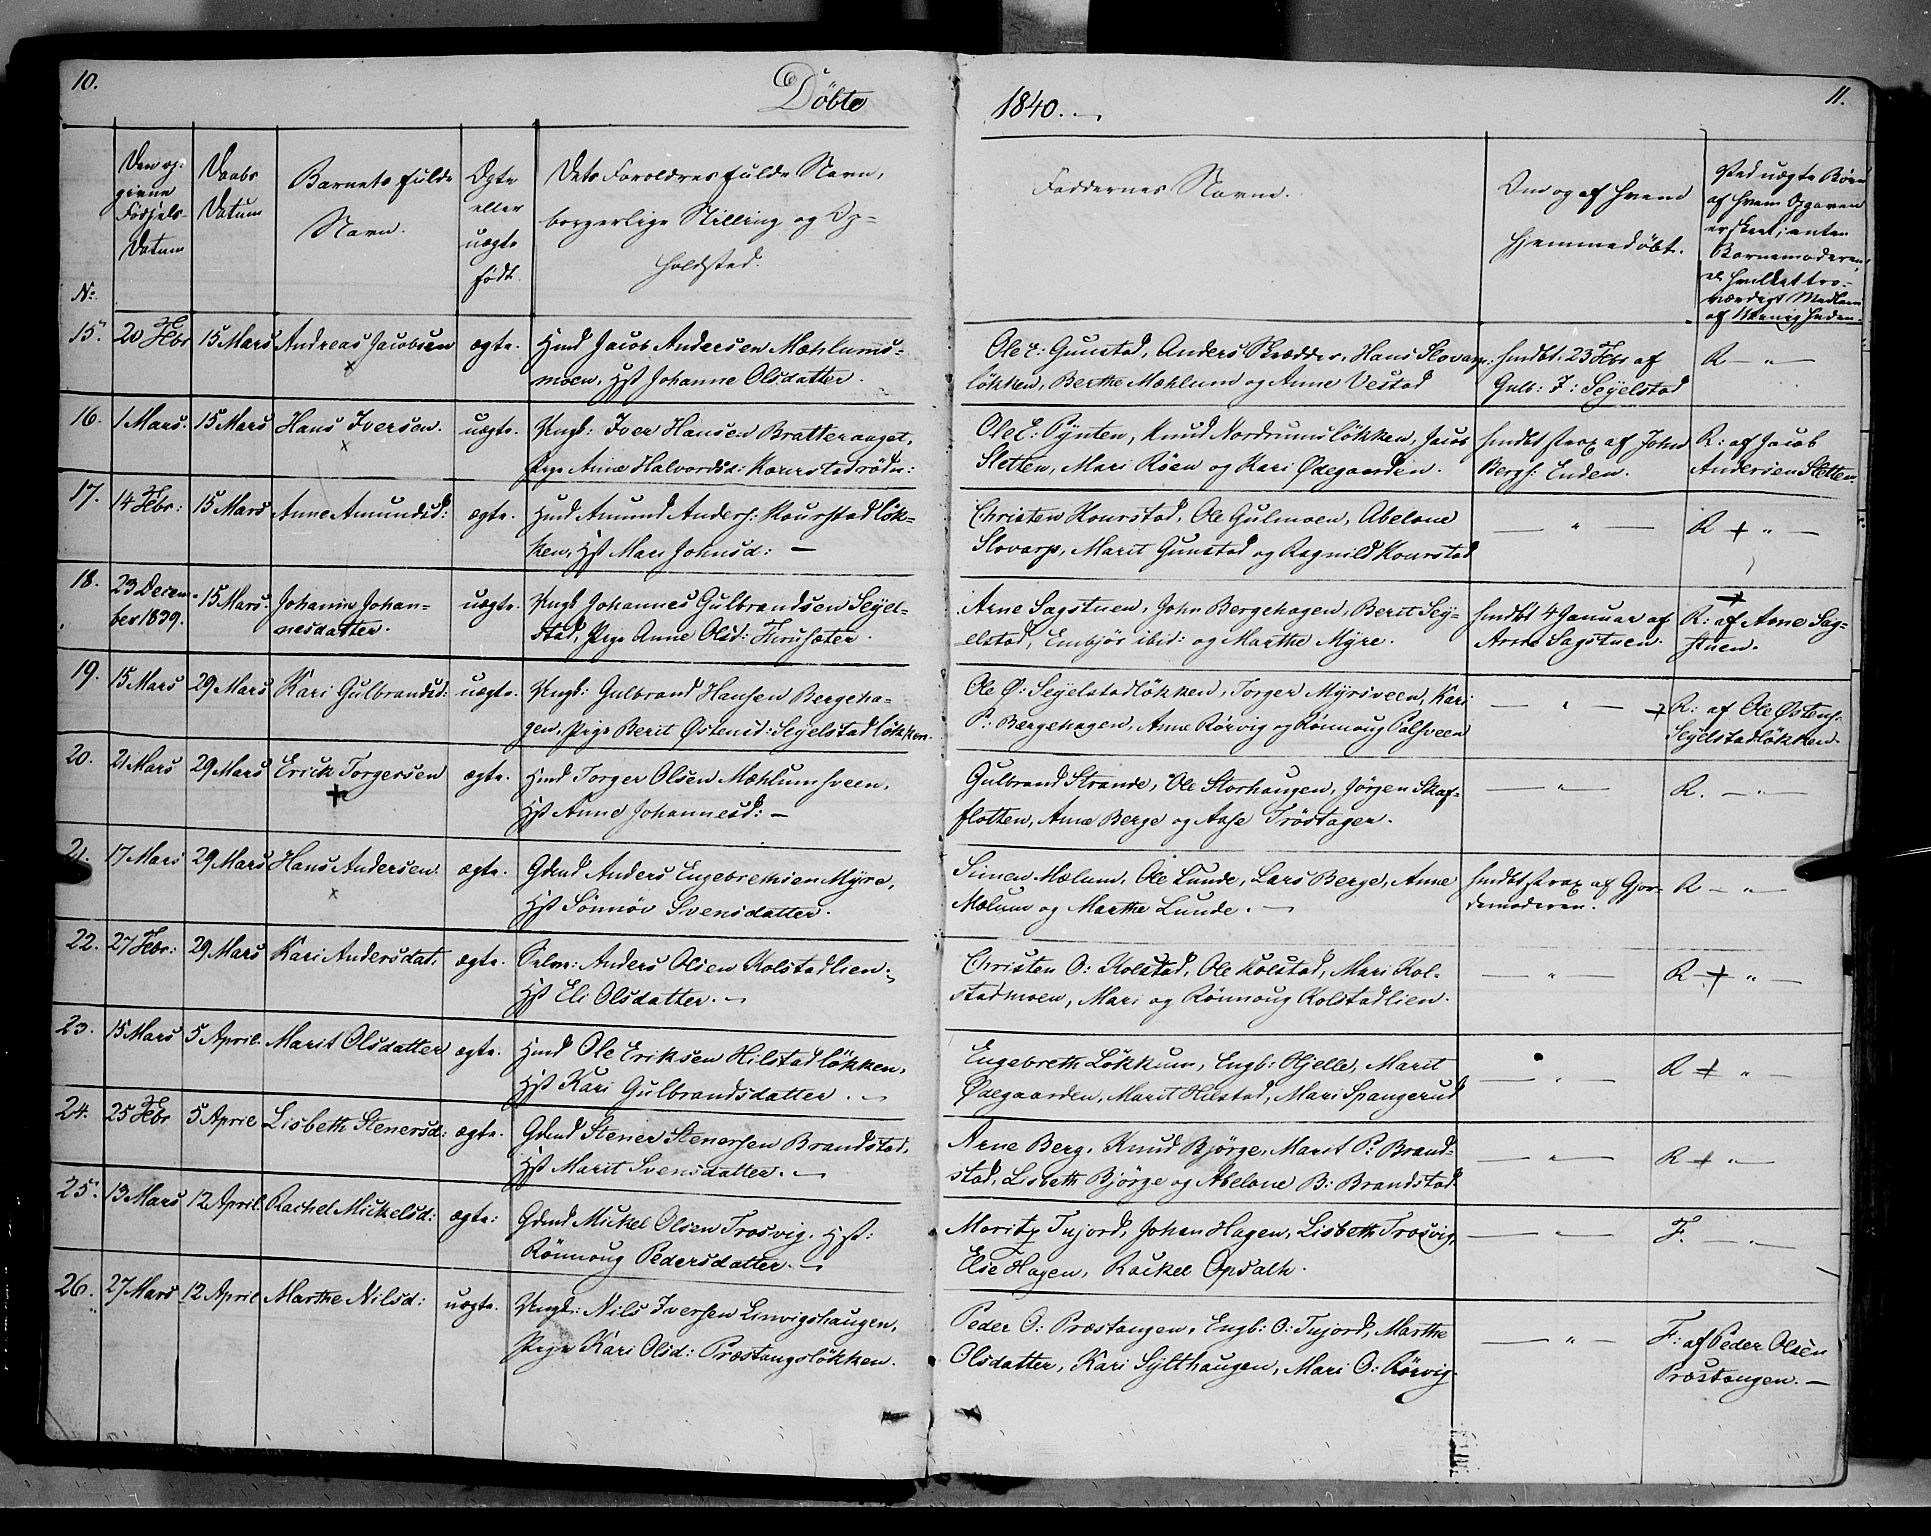 10.
Döbte
1840.
11.
No.
Den op-
givne
Födsels-
Datum
Daabs
Datum
Barnets fulde
Navn.
Ægte
eller
uægte
födt.
Dets Forældres fulde Navn,
borgerlige Stilling og Op-
holdsted.
Faddernes Navne.
Om og af hvem
hjemmedöbt.
Ved uægte Börn
af hvem Opgaven
er skeet; enten
Barnemoderen,
el. hvilket tro-
værdigt Medlem
af Menigheden.
15. 20 Febr 15 Mars Andreas Jacobsen ægte. Hmd Jacob Andersen Mæhlums-
moen, Hst Johanne Olsdatter.
Ole E: Gunstad, Anders Skrædder, Hans Slovarp:
lökken, Berthe Mæhlum og Anne Vestad
hmdbt. 23 Febr af
Gulb: J: Seyelstad
R — " —
16. 1 Mars. 15 Mars Hans Iversen. uægte. Ungk: Iver Hansen Bratteraaget,
Pige Anne Halvordsd: Kourstadrödn:
Ole E: Pynten, Knud Nordrumslökken, Jacob
Sletten, Mari Röen og Kari Ödegaarden.
hmdbt strax af John
Bergs: Enden.
R: af Jacob
Andersen Sletten.
17. 14 Febr: 15 Mars Anne Amundsd: ægte. Hmd Amund Anders: Kourstadlök-
ken, Hst Mari Johnsd: —
Christen Kourstad, Ole Gulmoen, Abelone
Slovarp, Marit Gunstad og Ragnild Kourstad
— " —
R + " —
18. 23 Decem-
ber 1839. 15 Mars. Johanne Johan-
nesdatter. uægte. Ungk Johannes Gulbrandsen Seyel-
stad, Pige Anne Olsd: Thrusæter.
Arne Sagstuen, John Bergehagen, Berit Sey-
elstad, Embjör ibid: og Marthe Myre.
hmdbt 4 Januar af
Arne Sagstuen.
R: af Arne Sag-
stuen.
19. 15 Mars 29 Mars Kari Gulbrandsd: uægte. Ungk: Gulbrand Hansen Bergeha-
gen, Pige Berit Östensd: Seyelstadlökken.
Ole Ö: Seyelstadlökken, Torger Myrsveen, Kari
P: Bergehagen, Anne Rörvig og Rönnoug Palsveen
— " —
R: af Ole Östens:
Seyelstadlökken.
20. 21 Mars 29 Mars Erick Torgersen ægte. Hmd Torger Olsen Mæhlumsveen,
Hst Anne Johannesd: —
Gulbrand Strande, Ole Storhaugen, Jörgen Skaf-
flotten, Anne Berge og Aase Tröstager.
— " —
R. — " —
21. 17 Mars 29 Mars Hans Andersen. ægte. Gdmd Anders Engebrethsen Myre,
Hst Sönnöv Svensdatter.
Simen Mælum, Ole Lunde, Lars Berge, Anne
Mælum og Marthe Lunde. —
hmdbt strax af Gjor-
demoderen.
R — " —
22. 27 Febr: 29 Mars Kari Andersdat: ægte. Anders Olsen Kolstadlien.
Hst Eli Olsdatter. —
Christen O: Kolstad, Ole Kolstad, Mari Kol-
stadmoen, Mari og Rönnoug Kolstadlien.
— " —
R + " —
23. 15 Mars 5 April. Marit Olsdatter ægte. Hmd Ole Eriksen Hilstadlökken,
Hst Kari Gulbrandsdatter. —
Engebreth Lökkum, Engb: Hjelle, Marit
Ödegaarden, Marit Hilstad, Mari Spangerud
— " —
R + " —
24. 25 Febr 5 April Lisbeth Stenersd: ægte. Gdmd Stener Stenersen Brandstad,
Hst Marit Svensdatter. —
Arne Berg, Knud Björge, Marit P: Brand-
stad, Lisbeth Björge og Abelone B: Brandstad
— " —
R + " —
25. 13 Mars 12 April. Rachel Mickelsd: ægte: Gdmd Mickel Olsen Trosvig. Hst:
Rönnoug Pedersdatter. —
Moritz Tujord, Johan Hagen, Lisbeth Trosvig,
Else Hagen, Rackel Opsalh.
— " —
F. — " —
26. 27 Mars 12 April Marthe Nilsd: uægte. Ungk: Nils Iversen Linvigshaugen,
Pige Kari Olsd: Præstangslökken.
Peder O: Præstangen, Engb: O: Tujord, Marthe
Olsdatter, Kari Sylthaugen, Mari O: Rörvig.
— " —
F: af Peder Olsen
Præstangen. —